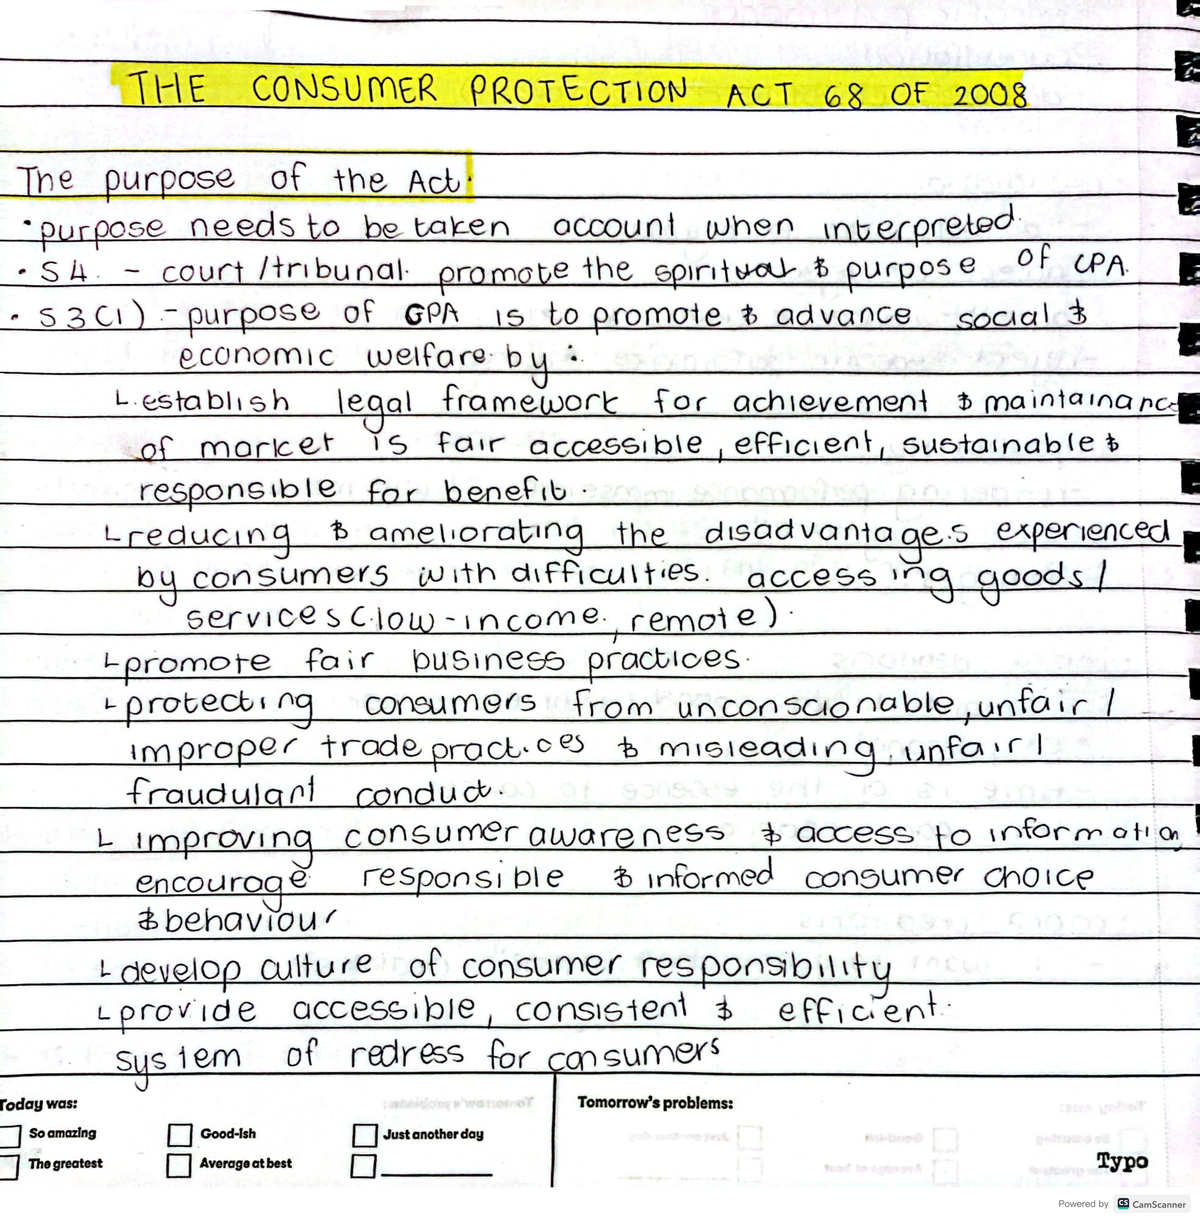 THE CONSUMER PROTECTION ACT 68 OF 2008
The purpose of the Act.
• purpose needs to be taken account when interpreted.
• S4. - court/tribunal. promote the spiritual & purpose of CPA.
• S3(1) - purpose of CPA is to promote & advance social &
economic welfare by :
L establish legal framework for achievement & maintainance
of market is fair accessible, efficient, sustainable &
responsible for benefit.
L reducing & ameliorating the disadvantages experienced
by consumers with difficulties. accessing goods/
services (low-income, remote).
L promote fair business practices.
L protecting consumers from unconscionable, unfair/
improper trade practices & misleading, unfair/
fraudulant conduct.
L improving consumer awareness & access to information
encourage responsible & informed consumer choice
& behaviour
L develop culture of consumer responsibility
L provide accessible, consistent & efficient.
system of redress for consumers
Today was:
Tomorrow's problems:
So amazing Good-ish Just another day
The greatest Average at best
Typo
Powered by CS CamScanner